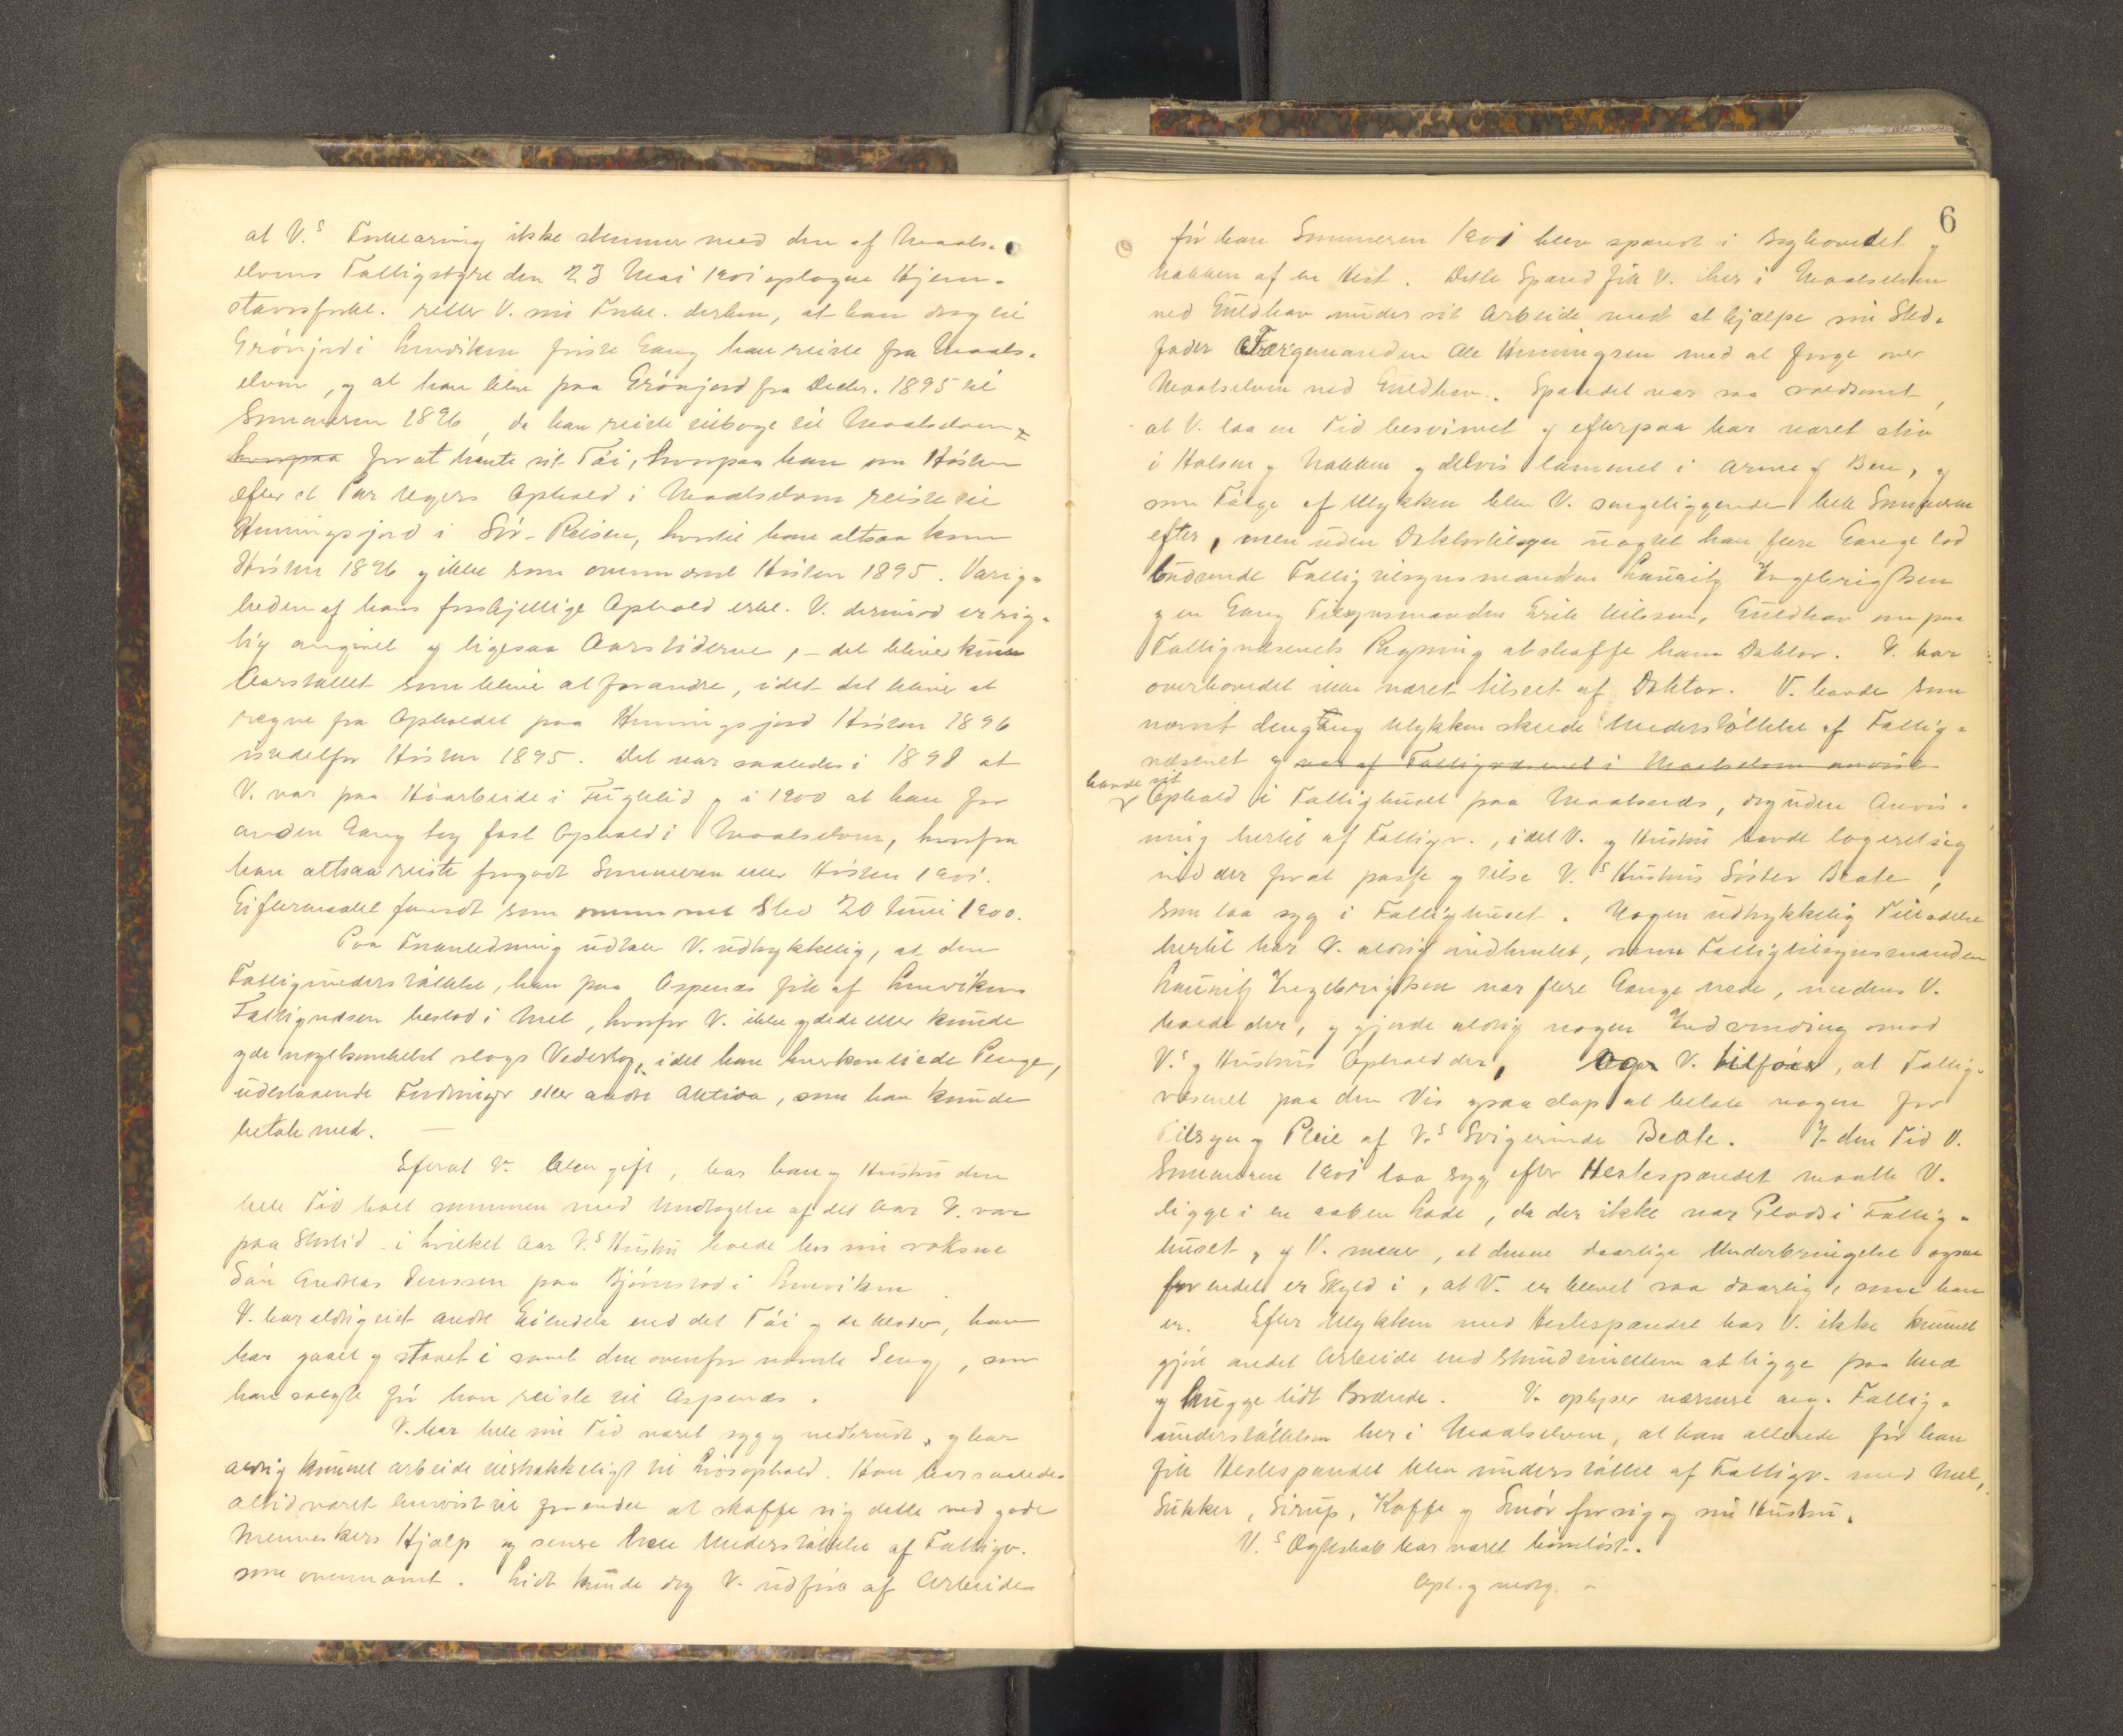 at V.s Forklaring ikke stemmer med den af Maals-
elvens Fattigstyre den 23 Mai 1901 optagne Hjem-
stavnsforkl. retter V. sin Forkl. derhen, at han drog til
Grönjord i Lenviken første Gang han reiste fra Maals-
elven, og at han blev paa Grönjord fra Decbr. 1895 til
Sommeren 1896, da han reiste tilbage til Maalselven
hvorpaa for at hente sit Tøi, hvorpaa han om Høsten
efter et Par Ugers Ophold i Maalselven reiste til
Henningsjord i Sör-Reisen, hvortil han altsaa kom
Høsten 1896 og ikke som ovennævnt Høsten 1895. Varig-
heden af hans forskjellige Ophold erkl. V. derimod er rig-
tig angivet og ligesaa Aarstiderne, - det bliver kun
Aarstallet som bliver at forandre, idet det bliver at
regne fra Opholdet paa Henningsjord Høsten 1896
istedetfor Høsten 1895. Det var saaledes i 1898 at
V. var paa Høarbeide i Fuglelid og i 1900 at han for
anden Gang tog fast Ophold i Maalselven, hvorfra
han altsaa reiste forgodt Sommeren eller Høsten 1901.
Giftermaalet fandt som ovennævnt Sted 20 Juni 1900.
Paa Foranledning udtaler V. udtrykkelig, at den
Fattigunderstøttelse, han paa Aspenes fik af Lenvikens
Fattigvæsen bestod i Mel, hvorfor V. ikke ydede eller kunde
yde nogetsomhelst slags Vederlag, idet han hverken eiede Penge,
udestaaende Fordringer eller andre Aktiva, som han kunde
betale med. —
Efterat V. blev gift, har han og Hustru den
hele Tid boet sammen med Undtagelse af det Aar V. var
paa i hvilket Aar V.s Hustru boede hos sin voksne
Søn Andreas Jenssen paa Bjørnstad i Lenviken.
V. har aldrig eiet andre Eiendele end det Tøi og de Klæder, han
har gaaet og staaet i samt den ovenfor nævnte Seng, som
han solgte før han reiste til Aspenes.
V. har hele sin Tid været syg og nedbrudt, og har
aldrig kunnet arbeide tilstrækkeligt til Livsophold. Han har saaledes
altid været henvist til for endel at skaffe sig dette ved gode
Menneskers Hjælp og senere hen Understøttelse af Fattigv.
som ovennævnt. Lidt kunde dog V. udføre af Arbeide
6
før han Sommeren 1901 blev spændt i Baghovedet og
Nakken af en Hest. Dette Spænd fik V. her i Maalselven
ved Guldhav under sit Arbeide med at hjælpe sin Sted-
fader Færgemanden Ole Henningsen med at færge over
Maalselven ved Guldhav. Spændet var saa voldsomt,
at V. laa en Tid besvimet og efterpaa har været stiv
i Halsen og Nakken og delvis lammet i Arme og Ben, og
som Følge af Ulykken blev V. sengeliggende hele Sommeren
efter, men uden Doktortilsyn uagtet han flere Gange lod
budsende Fattigtilsynsmanden Lauritz Ingebrigtsen
og en Gang Tilsynsmanden Erik Nilssen, Guldhav om paa
Fattigvæsenets Regning at skaffe ham Doktor. V. har
overhovedet ikke været tilseet af Doktor. V. havde som
nævnt dengang Ulykken skede Understøttelse af Fattig-
væsenet og var af Fattigvæsenet i Maalselven anvist
havde sit Ophold i Fattighuset paa Maalsnes, dog uden Anvis-
ning hertil af Fattigv., idet V. og Hustru havde logeret sig
ind der for at passe og tilse V.s Hustrus Søster Beate,
som laa syg i Fattighuset. Nogen udtrykkelig Tilladelse
hertil har V. aldrig indhentet, men Fattigtilsynsmanden
Lauritz Ingebrigtsen var flere Gange nede, medens V.
boede der, og gjorde aldrig nogen Indvending mod
V.s og Hustrus Ophold der, V. tilføier, at Fattig-
væsenet paa den Vis ogsaa slap at betale nogen for
Tilsyn og Pleie af V.s Svigerinde Beate. I den Tid V.
Sommeren 1901 laa syg efter Hestespændet maatte V.
ligge i en aaben Lade, da der ikke var Plads i Fattig-
huset, og V. mener, at denne daarlige Underbringelse ogsaa
for endel er Skyld i, at V. er blevet saa daarlig, som han
er. Efter Ulykken med Hestespændet har V. ikke kunnet
gjøre andet Arbeide end stundimellem at ligge paa Knæ
og hugge lidt Brænde. V. oplyser nærmere ang. Fattig-
understøttelsen her i Maalselven, at han allerede før han
fik Hestespændet blev understøttet af Fattigv. med Mel,
Sukker, Sirup, Kaffe og Smör for sig og sin Hustru.
V.s Ægteskab har været barnløst.
Opl. og vedg. -